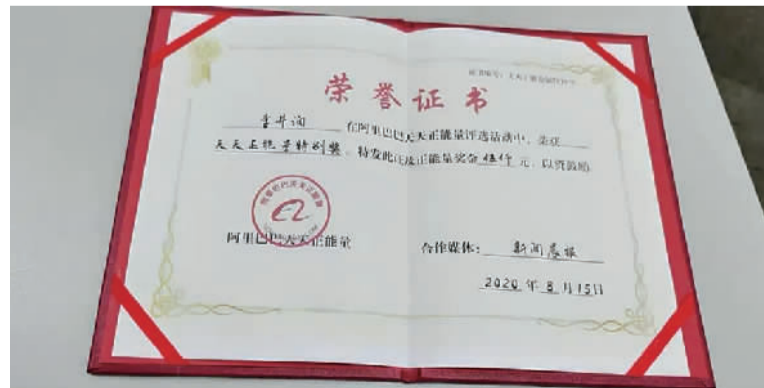 荣誉证书
在阿里巴巴天天正能量评选活动中，荣获
天天正能量特别奖，特发此证及正能量奖金伍仟元，以资鼓励
阿里巴巴天天正能量
合作媒体：新闻晨报
2020年8月15日